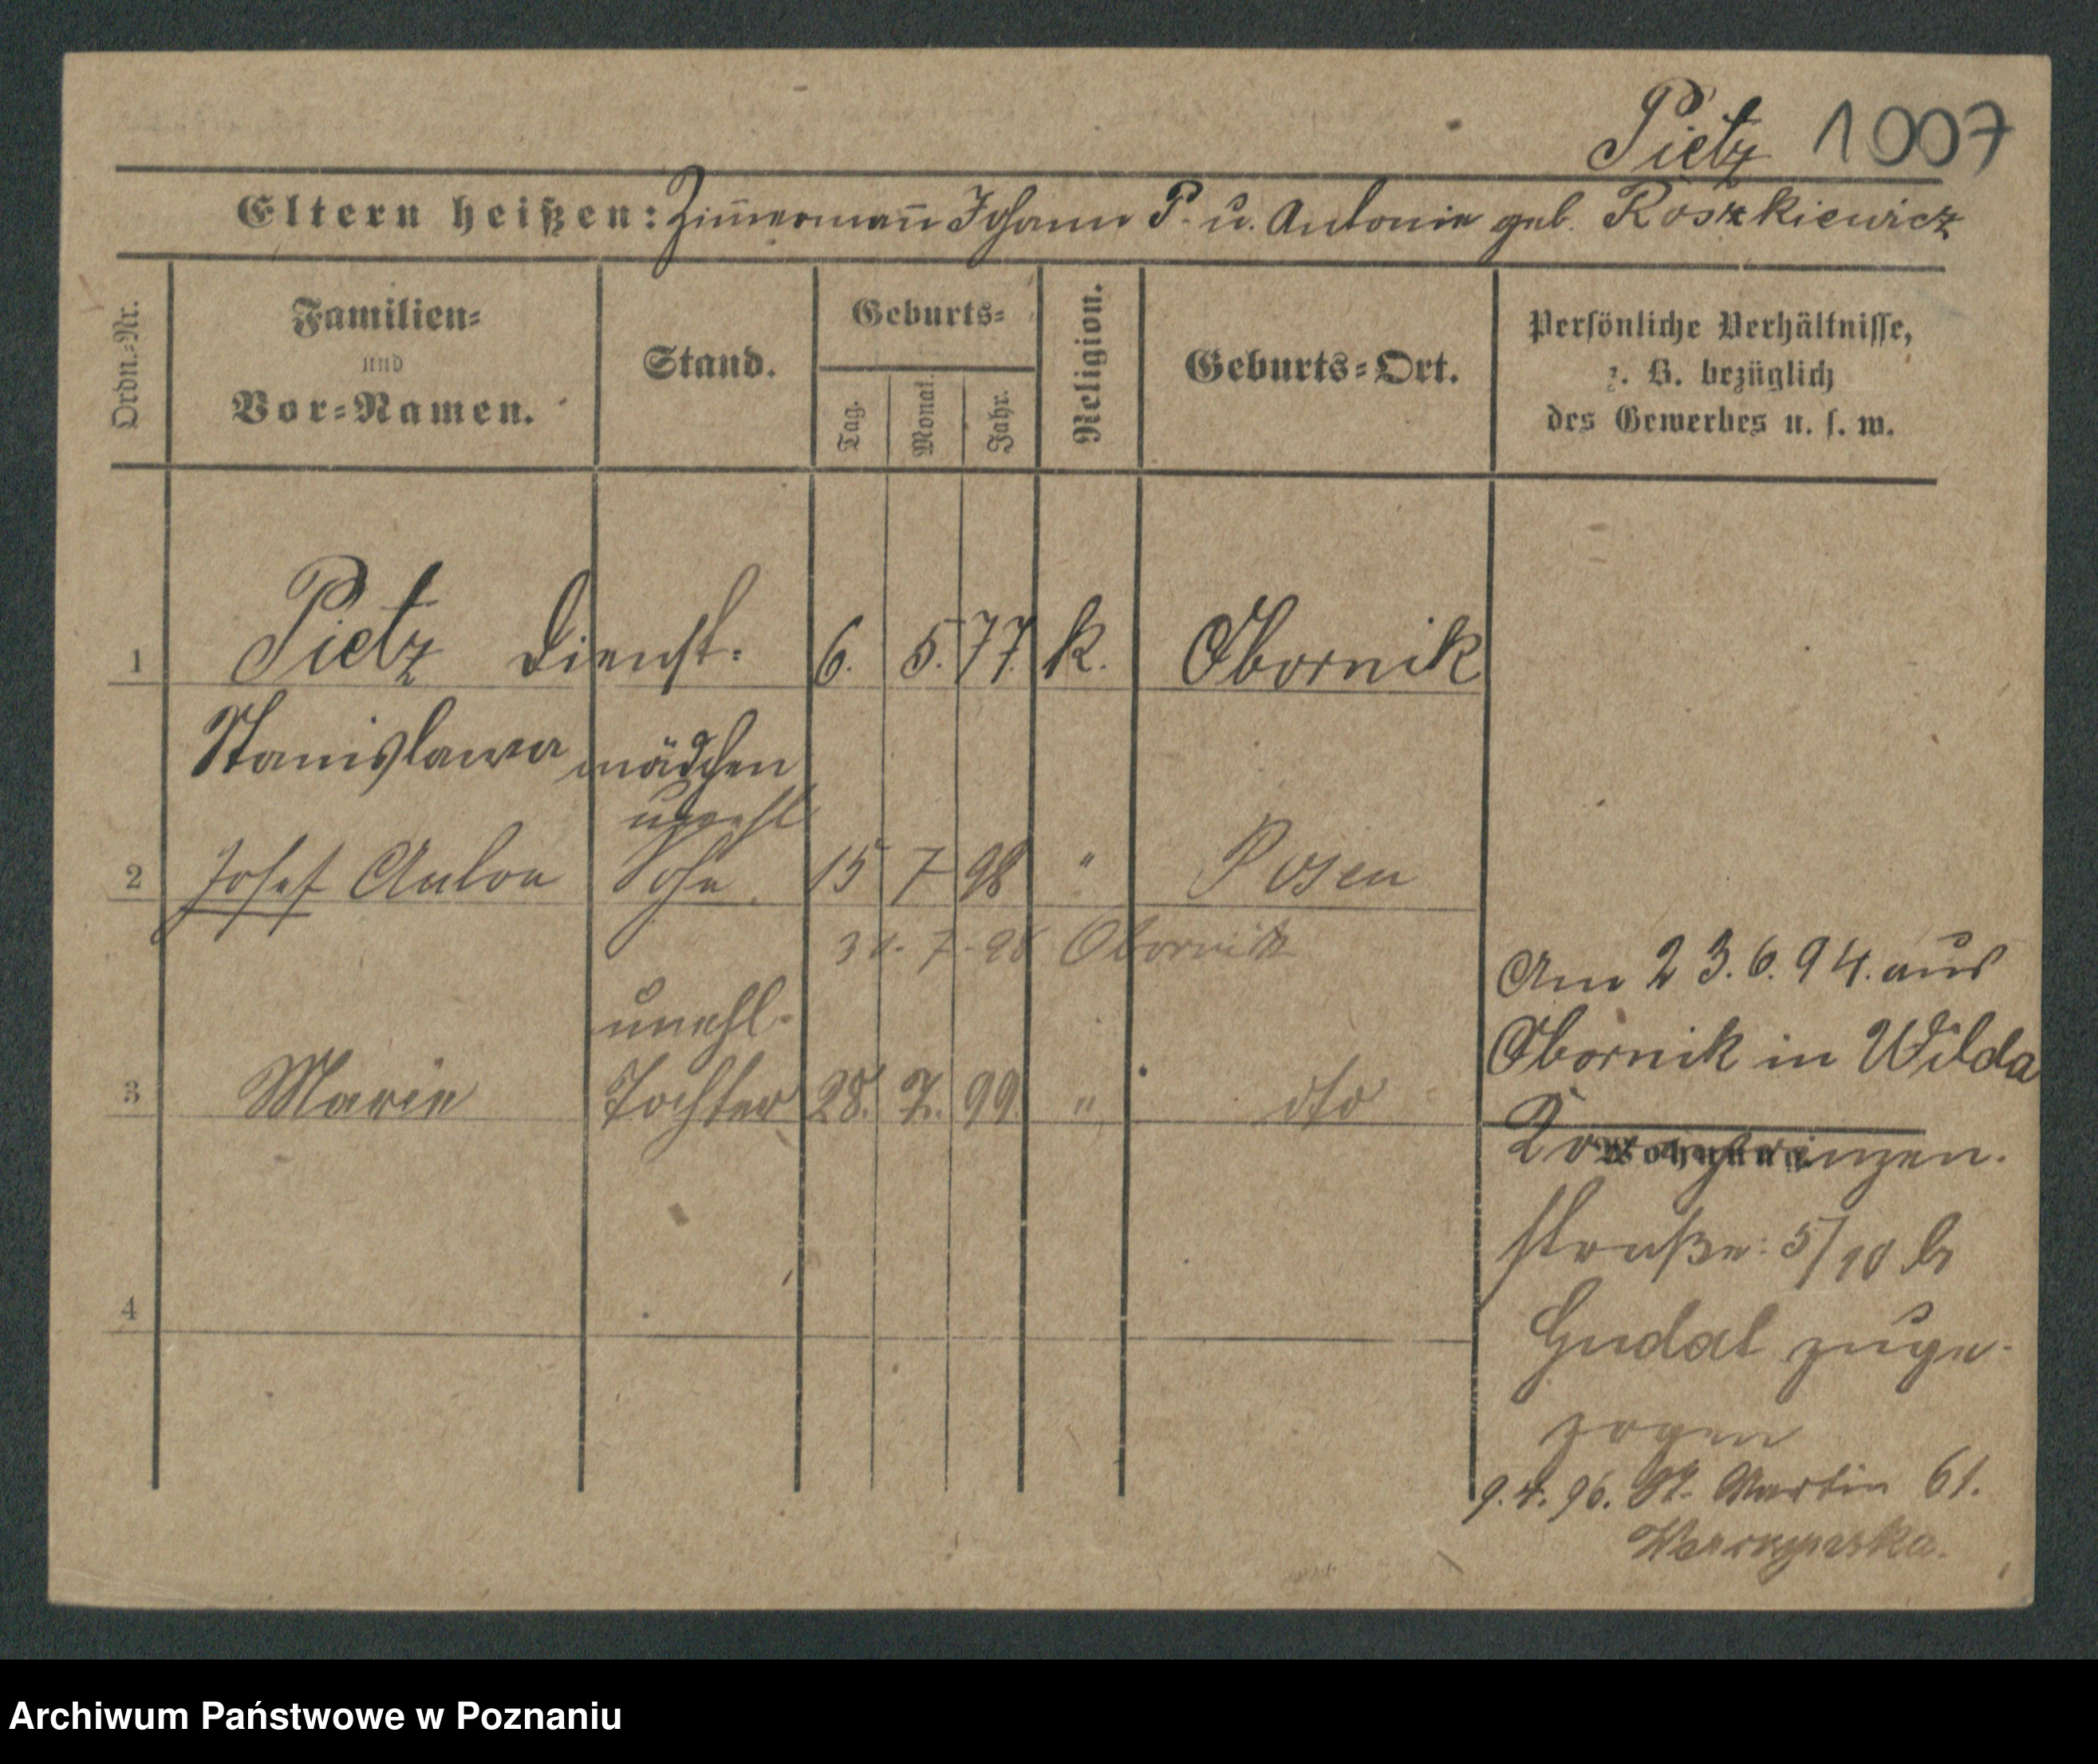 Pietz 1007
Eltern heißen: Zim̄ermann̄ Johann P. u. Antonie geb. Roszkiewicz
Ordn.-Nr.
Familien-
und
Vor-Namen.
Stand.
Geburts-
Tag.
Monat.
Jahr.
Religion.
Geburts-Ort.
Persönliche Verhältnisse,
z. B. bezüglich
des Gewerbes u. s. w.
1 Pietz Dienst- 6. 5. 77. k. Obornik
Stanislawa mädchen
unehl
2 Josef Anton Sohn 15 7 98 " Posen
31. 7. 98 Obornik
unehl.
3 Marie Tochter 28. 7. 99. " dto
4
Am 23.6.94. aus
Obornik in Wilda
Wohnung
Kronprinzen-
straße 5/10 b
Gudat zuge-
zogen
9.4.96. St. Martin 61.
Archiwum Państwowe w Poznaniu